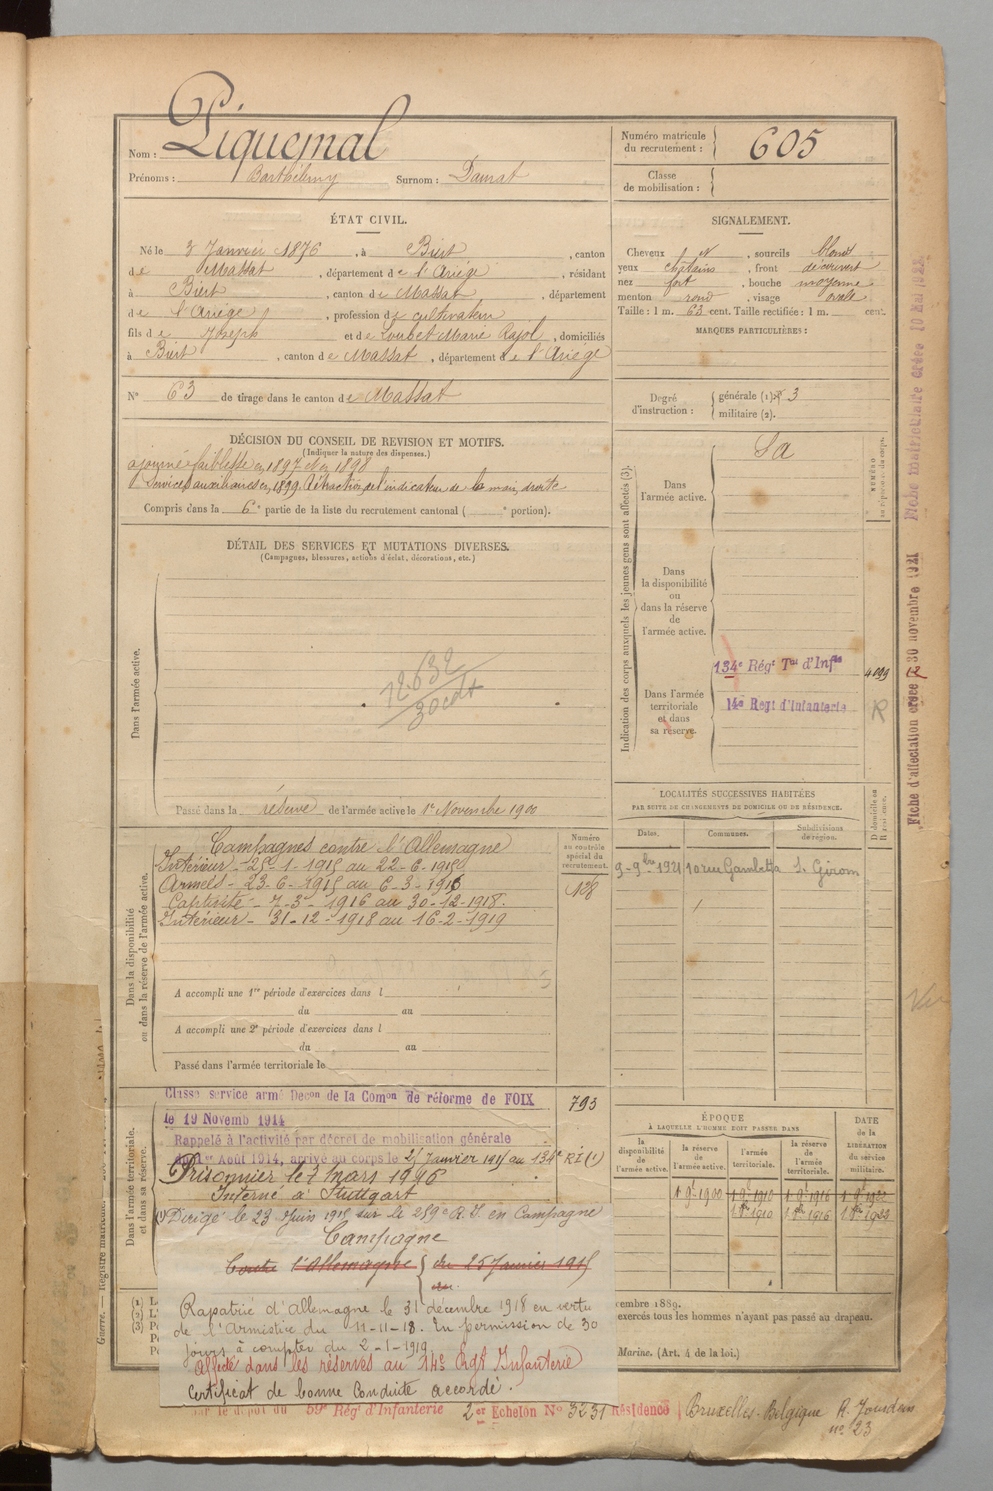 Nom : Piquemal
Prénoms : Barthélémy Surnom : Daurat
Numéro matricule du recrutement : 605
Classe de mobilisation :
ÉTAT CIVIL.
Né le 3 Janvier 1876, à Biert, canton
de Massat, département de l'Ariége, résidant
à Biert, canton de Massat, département
de l'Ariège, profession de cultivateur
fils de Joseph et de Loubet Marie Rajol, domiciliés
à Biert, canton de Massat, département de l'Ariège
N° 63 de tirage dans le canton de Massat
SIGNALEMENT.
Cheveux N, sourcils blond
yeux chatains, front découvert
nez fort, bouche moyenne
menton rond, visage ovale
Taille : 1 m. 63 cent. Taille rectifiée : 1 m. cent.
MARQUES PARTICULIÈRES :
Degré d'instruction : générale (1) 3
militaire (2).
DÉCISION DU CONSEIL DE REVISION ET MOTIFS.
(Indiquer la nature des dispenses.)
ajourné faiblesse en 1897 et en 1898
Services auxiliaires en 1899. Rétraction de l'indicateur de la main droite
Compris dans la 6e partie de la liste du recrutement cantonal ( e portion).
DÉTAIL DES SERVICES ET MUTATIONS DIVERSES.
(Campagnes, blessures, actions d'éclat, décorations, etc.)
Dans l'armée active.
12632
30 oct
Passé dans la réserve de l'armée active le 1er Novembre 1900
Indication des corps auxquels les jeunes gens sont affectés (3).
Dans l'armée active.
Sa
NUMÉRO
Dans la disponibilité ou dans la réserve de l'armée active.
Dans l'armée territoriale et dans sa réserve.
134e Régt Tal d'Infie
4099
14e Regt d'Infanterie
R
LOCALITÉS SUCCESSIVES HABITÉES
PAR SUITE DE CHANGEMENTS DE DOMICILE OU DE RÉSIDENCE.
Dates. Communes. Subdivisions de région.
9-9bre 1921 10 rue Gambetta St. Girons
Dans la disponibilité ou dans la réserve de l'armée active.
Numéro au contrôle spécial du recrutement.
128
Campagnes contre l'Allemagne
Intérieur - 25-1-1915 au 22-6-1915
Armées - 23-6-1915 au 6-3-1916
Captivité - 7-3-1916 au 30-12-1918.
Intérieur - 31-12-1918 au 16-2-1919
A accompli une 1re période d'exercices dans l
du au
A accompli une 2e période d'exercices dans l
du au
Passé dans l'armée territoriale le
Dans l'armée territoriale et dans sa réserve.
Classé service armé Decon de la Comon de réforme de FOIX
le 19 Novemb 1914
793
Rappelé à l'activité par décret de mobilisation générale
du 1er Août 1914, arrivé au corps le 25 Janvier 1915 au 134e RI (1)
Prisonnier le 7 mars 1916
Interné à Stuttgart
(1) Dirigé le 23 Juin 1915 sur le 259e R.I. en Campagne
Campagne
Contre l'Allemagne { du 25 Janvier 1915
au
Rapatrié d'Allemagne le 31 décembre 1918 en vertu
de l'Armistice du 11-11-18. En permission de 30
jours à compter du 2-1-1919
Affecté dans les réserves au 14e Rgt Infanterie
Certificat de bonne conduite accordé.
ÉPOQUE
À LAQUELLE L'HOMME DOIT PASSER DANS
la disponibilité de l'armée active.
la réserve de l'armée active.
l'armée territoriale.
la réserve de l'armée territoriale.
DATE de la LIBÉRATION du service militaire.
1 9bre 1900 1 9bre 1910 1 9bre 1916 1 9bre 1922
1 8bre 1910 1 8bre 1916 1 8bre 1922
cembre 1889.
exercés tous les hommes n'ayant pas passé au drapeau.
Marine. (Art. 4 de la loi.)
par le dépôt du 59e Régt d'Infanterie 2er Echelon No 3231 Résidence Bruxelles - Belgique R. Jourdan
no 23
Fiche d'affectation créée 30 novembre 1921
Guerre. — Registre matricule.